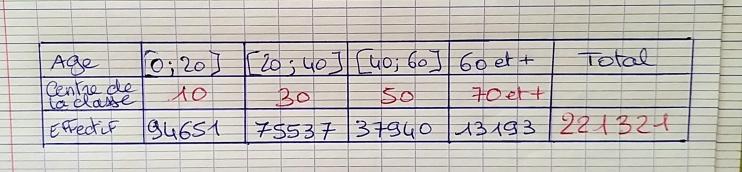 Age [0;20] [20;40] [40;60] 60 et + Total
Centre de la classe 10 30 50 70 et +
Effectif 94651 75537 37940 13193 221321